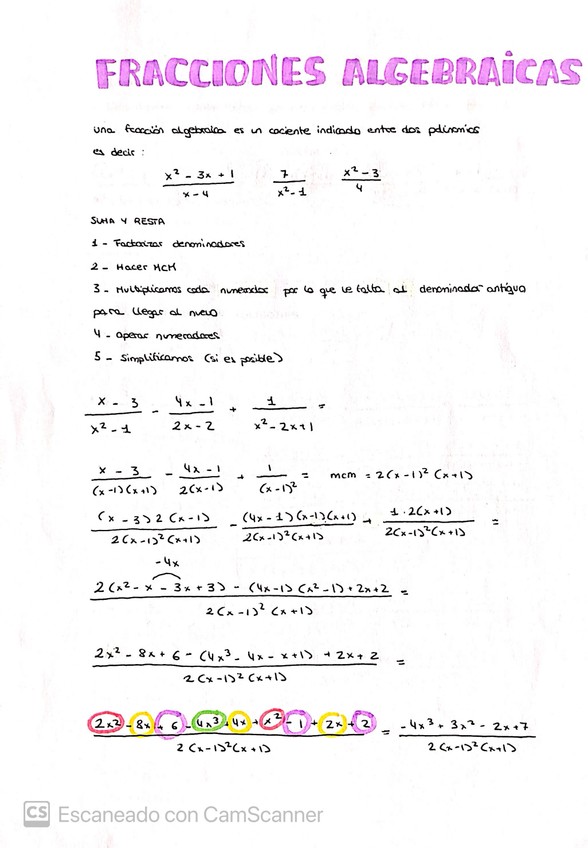 FRACCIONES ALGEBRAiCAS
una fracción algebraica es un cociente indicado entre dos polinomios
es decir :
(x² - 3x + 1)/(x - 4)   7/(x² - 1)   (x² - 3)/4
SUMA Y RESTA
1 - Factorizar denominadores
2 - Hacer MCM
3 - Multiplicamos cada numerador por lo que le falta al denominador antiguo
para llegar al nuevo
4 - operar numeradores
5 - Simplificamos (si es posible)
(x - 3)/(x² - 1) - (4x - 1)/(2x - 2) + 1/(x² - 2x + 1) =
(x - 3)/((x-1)(x+1)) - (4x - 1)/(2(x-1)) + 1/(x-1)² = mcm = 2(x-1)² (x+1)
((x - 3) 2 (x-1))/(2(x-1)²(x+1)) - ((4x - 1)(x-1)(x+1))/(2(x-1)²(x+1)) + (1·2(x+1))/(2(x-1)²(x+1)) =
-4x
(2(x² - x - 3x + 3) - (4x-1)(x²-1) + 2x+2)/(2(x-1)² (x+1)) =
(2x² - 8x + 6 - (4x³ - 4x - x + 1) + 2x + 2)/(2(x-1)²(x+1)) =
(2x² - 8x + 6 - 4x³ + 4x + x² - 1 + 2x + 2)/(2(x-1)²(x+1)) = (-4x³ + 3x² - 2x + 7)/(2(x-1)²(x+1))
CS Escaneado con CamScanner